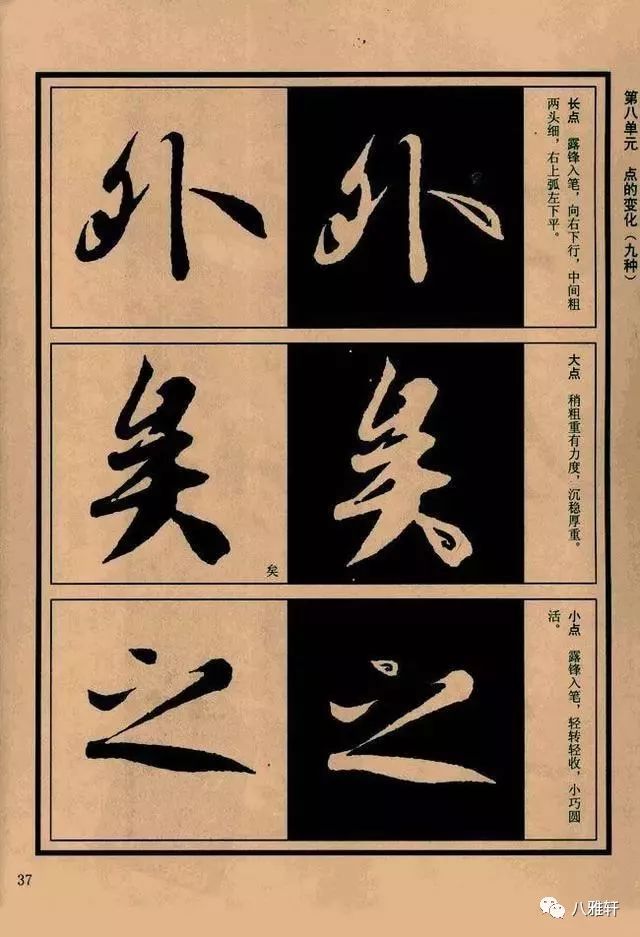 第八单元 点的变化（九种）
长点 露锋入笔，向右下行，中间粗
两头细，右上弧左下平。
外
外
大点 稍粗重有力度，沉稳厚重。
矣
矣
矣
小点 露锋入笔，轻转轻收，小巧圆
活。
之
之
37
八雅轩